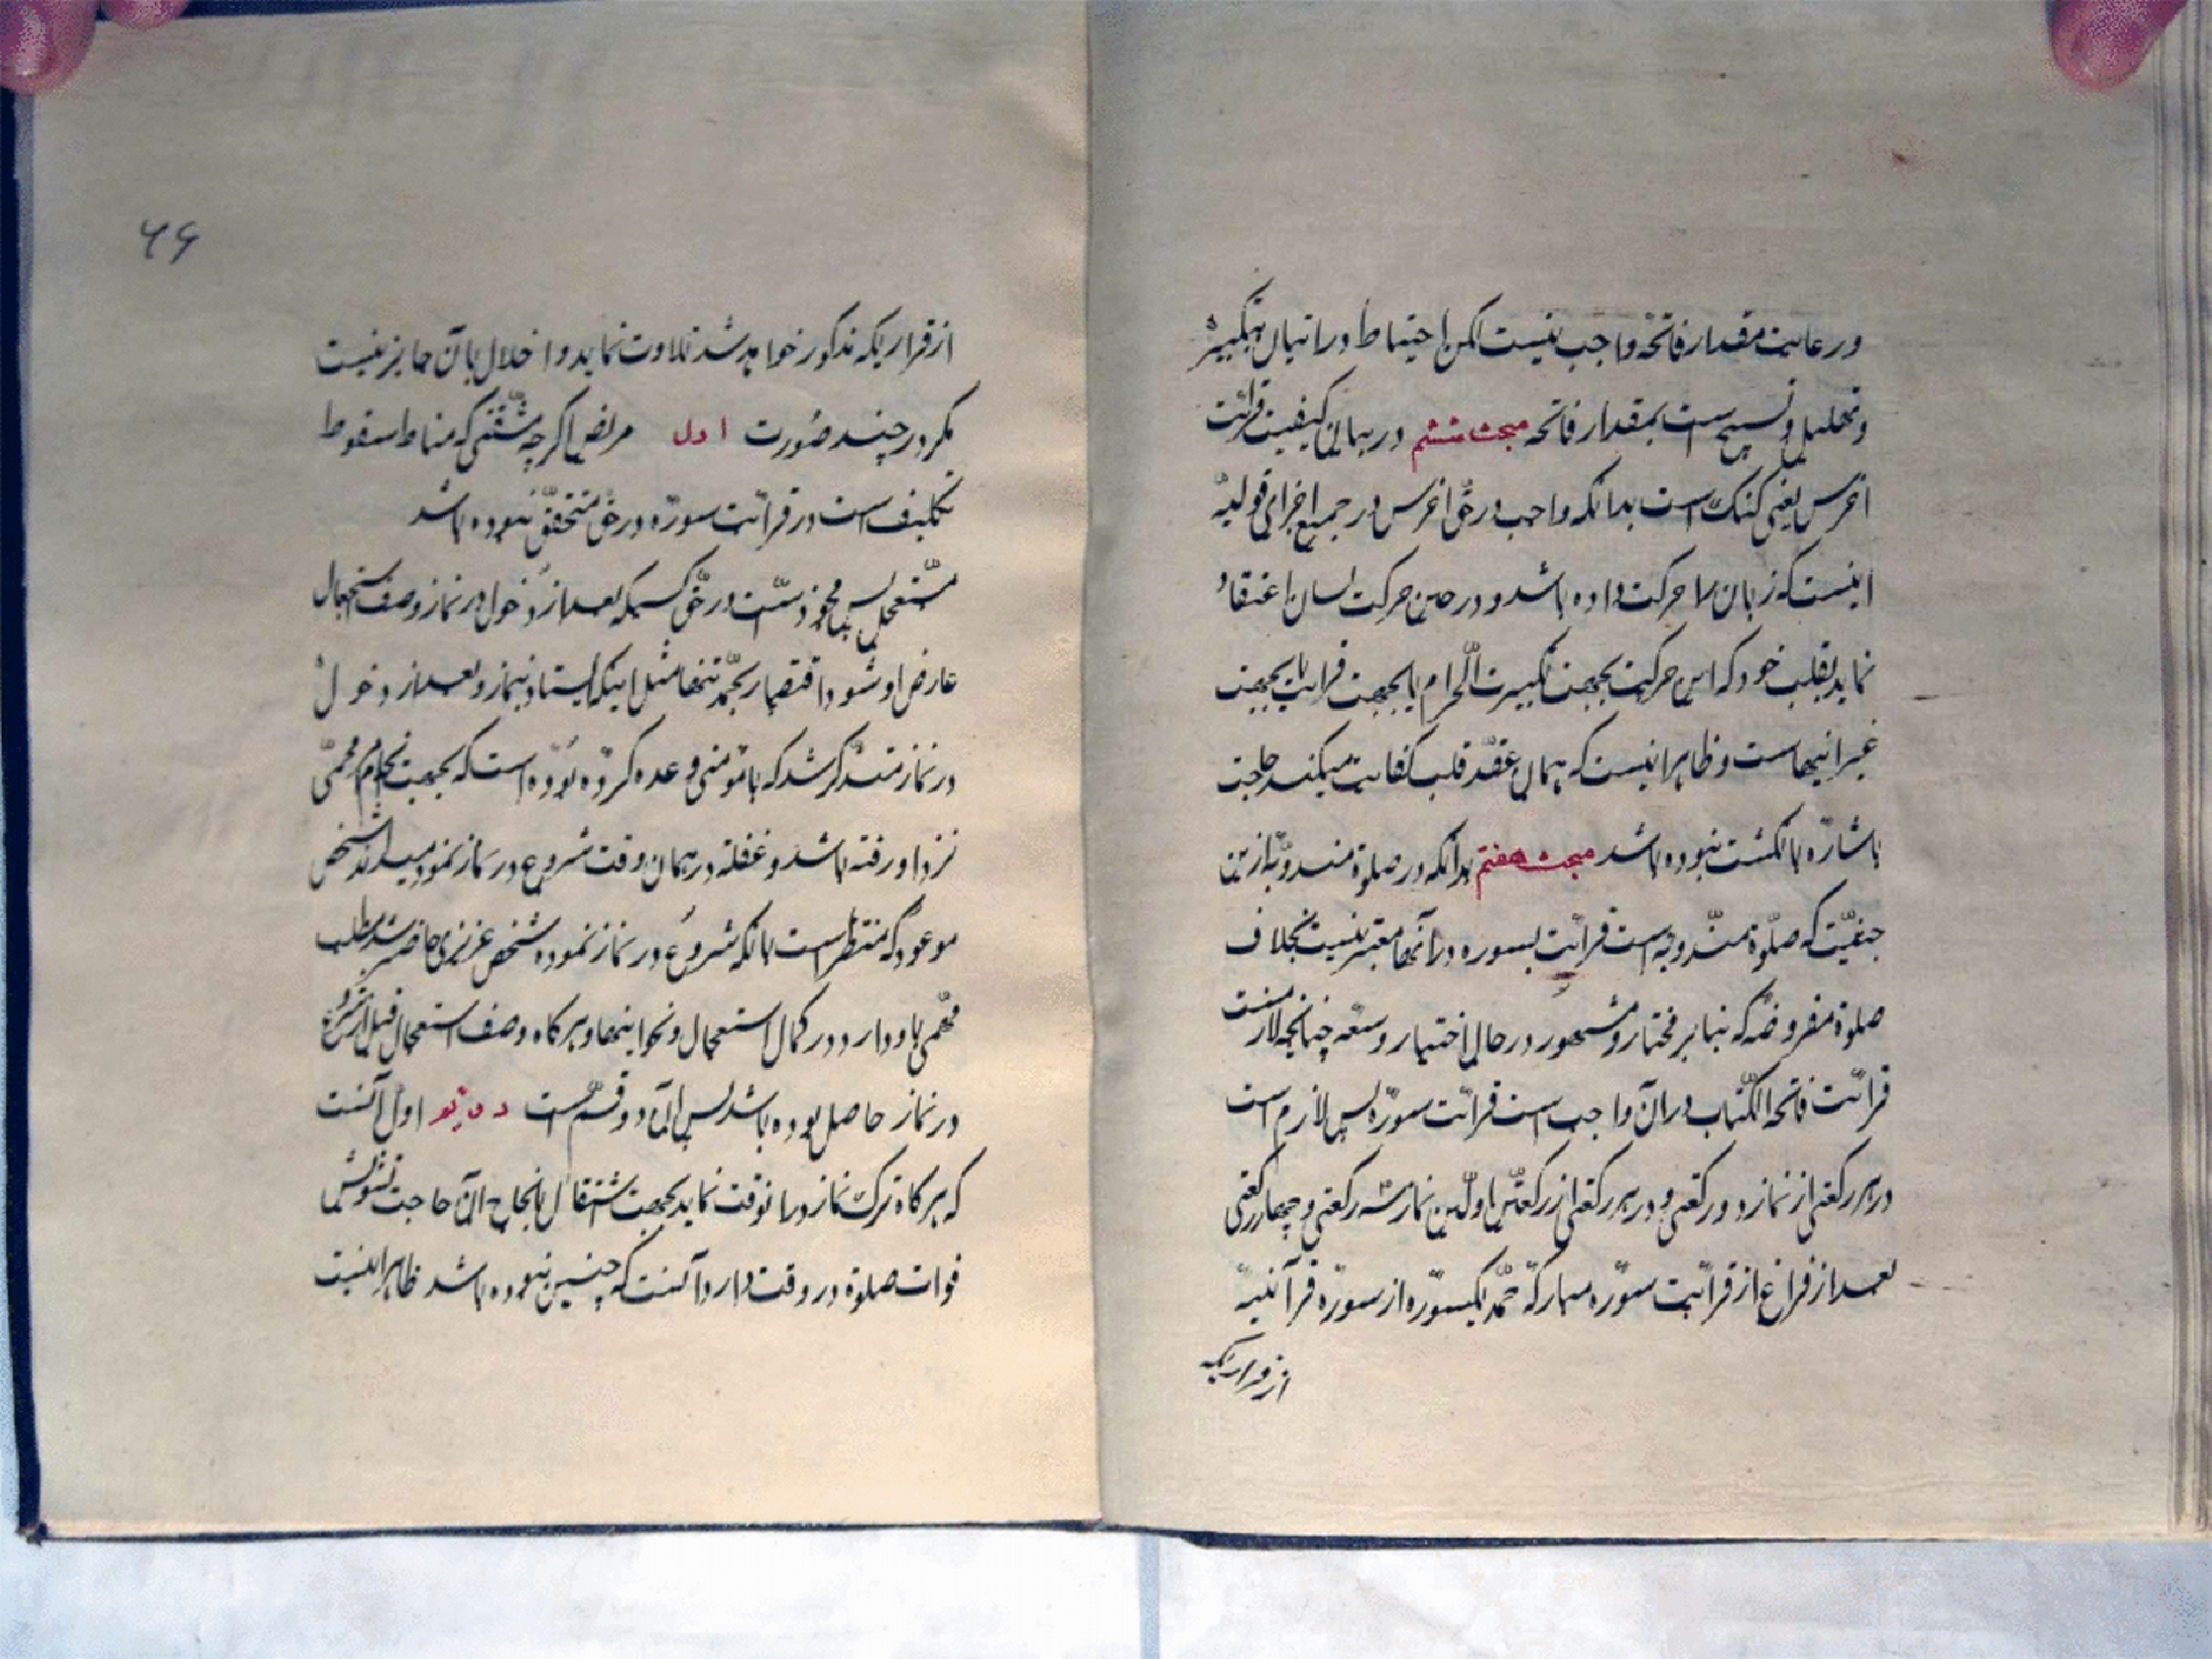 ورعایت مقدار فاتحه واجب نیست لکن احتیاط در اتیان بتکبیر
وتهلیل وتسبیح است بمقدار فاتحه مبحث ششم در بیان کیفیت قرائت
اخرس یعنی کنک است بدانکه واجب در حق اخرس در جمیع اجزای قولیه
اینست که زبان را حرکت داده باشد و در حین حرکت لسان اعتقاد
نماید بقلب خود که این حرکت بجهت تکبیرت الحرام یا بجهت قرائت یا بجهت
غیر اینهاست و ظاهر اینست که همان عقد قلب کفایت میکند حاجت
باشاره بانکشت نبوده باشد مبحث هفتم بدانکه در صلوة مندوبه ازین
حیثیت که صلوة مندوبه است قرائت بسوره در آنها معتبر نیست بخلاف
صلوة مفروضه که بنا بر مختار و مشهور در حال اختیار وسعه چنانچه لازمست
قرائت فاتحة الکتاب در آن واجب است قرائت سوره پس لازم است
در هر رکعتی از نماز دو رکعتی و در هر رکعتی از رکعتین اولین نماز سه رکعتی و چهار رکعتی
بعد از فراغ از قرائت سوره مبارکه حمد یکسوره از سوره قرآنیه
از قراریکه
۶۶
از قراریکه مذکور خواهد شد تلاوت نماید و اخلال بآن جایز نیست
مکر در چند صورت اول مریض اکرچه مشقتی که مناط سقوط
تکلیف است در قرائت سوره در حق متحقق نبوده باشد
مستعجل پس مجوز است در حق کسیکه بعد از دخول در نماز وصف استعجال
عارض او شود اقتصار بحمد تنها مثل اینکه ایستاد بنماز و بعد از دخول
در نماز متذکر شد که با مؤمنی وعده کرده بوده است که بجهت انجام مهمی
نزد او رفته باشد و غفلة در همان وقت شروع در نماز نمود میداند شخص
موعود که منتظر است یا آنکه شروع در نماز نموده شخص عزیزی حاضر شد مطلب
مهمی با و دارد در کمال استعجال و نحو اینها و هر کاه وصف استعجال قبل از شروع
در نماز حاصل بوده باشد پس آن دو قسم است اول آنست
که هر کاه ترک نماز در آنوقت نماید بجهت اشتغال بانجاح آن حاجت تشویش
فوات صلوة در وقت دارد آنست که چنین نبوده باشد ظاهر اینست